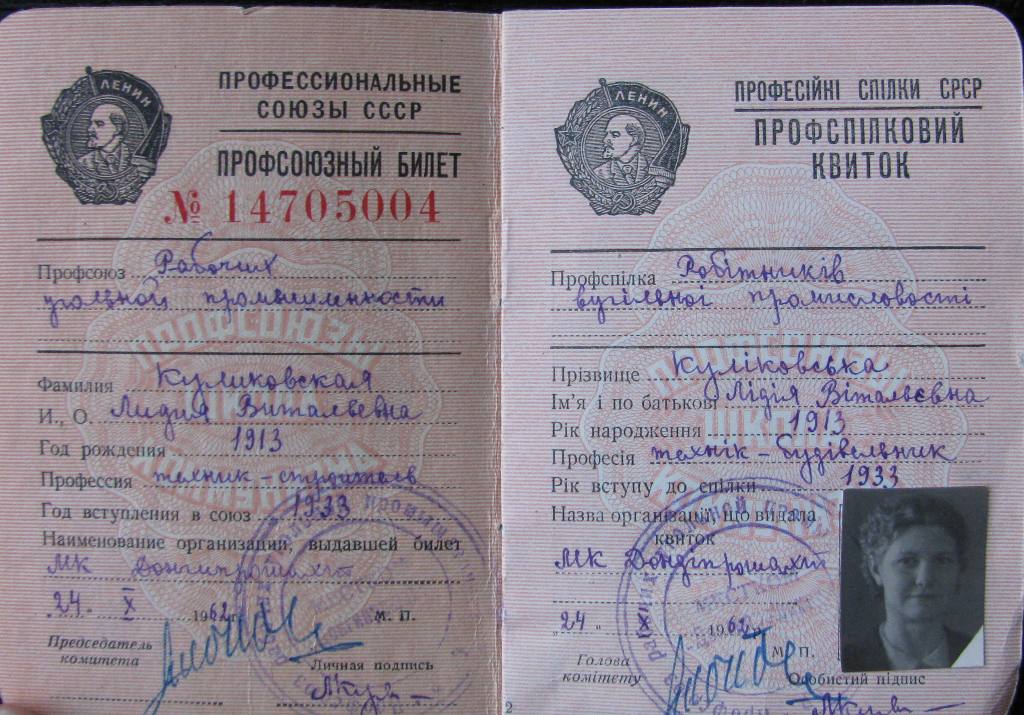 ЛЕНИН
ПРОФЕССИОНАЛЬНЫЕ
СОЮЗЫ СССР
ПРОФСОЮЗНЫЙ БИЛЕТ
№ 14705004
Профсоюз Рабочих
угольной промышленности
Фамилия Куликовская
И., О. Лидия Витальевна
Год рождения 1913
Профессия техник-строитель
Год вступления в союз 1933
Наименование организации, выдавшей билет
МК Донгипрошахт
24. X 1962 г.
М. П.
Председатель
комитета
Личная подпись
ЛЕНИН
ПРОФЕСІЙНІ СПІЛКИ СРСР
ПРОФСПІЛКОВИЙ
КВИТОК
Профспілка Робітників
вугільної промисловості
Прізвище Куліковська
Ім'я і по батькові Лідія Вітальєвна
Рік народження 1913
Професія технік-будівельник
Рік вступу до спілки 1933
Назва організації, що видала
квиток
МК Дондіпрошахт
„24 " 1962
М. П.
Голова
комітету
Особистий підпис
2